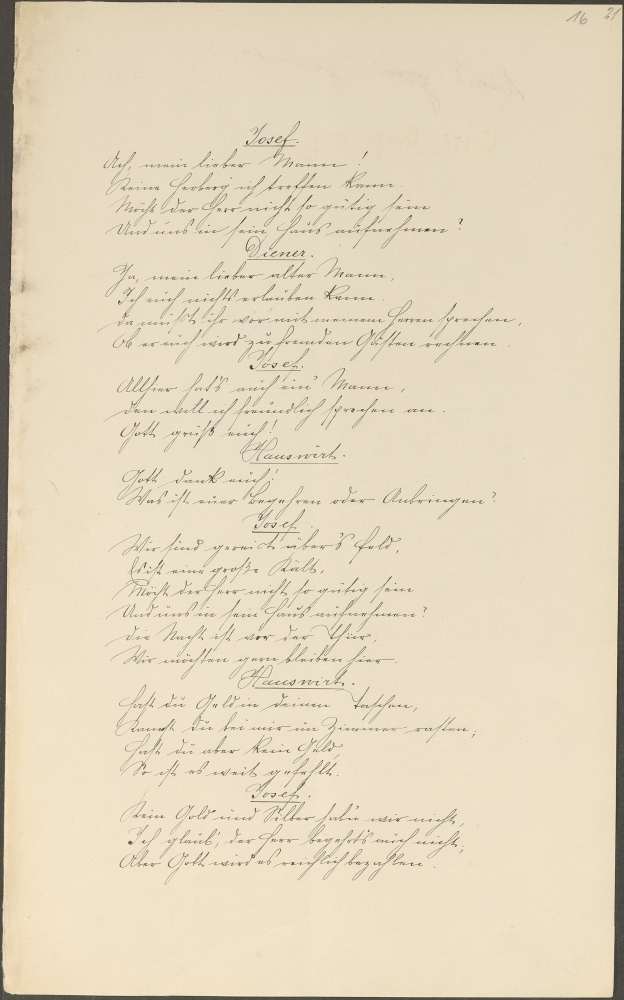 16 21
Josef.
Ach, mein lieber Mann!
Keine Herberg ich treffen kann.
Möcht der Herr nicht so gütig sein
Und uns in sein Haus aufnehmen?
Diener.
Ja, mein lieber alter Mann,
Ich euch nichts erlauben kann.
Da müsst ihr vor mit meinem Herren sprechen,
Ob er euch wird zu fremden Gästen rechnen.
Josef.
Allhier hat's auch ein Mann,
Den will ich freundlich sprechen an.
Gott grüß euch!
Hauswirt.
Gott dank euch!
Was ist euer Begehren oder Anbringen?
Josef.
Wir sind gereist über's Feld,
Es ist eine große Kält,
Möcht der Herr nicht so gütig sein
Und uns in sein Haus aufnehmen?
Die Nacht ist vor der Thür,
Wir möchten gern bleiben hier.
Hauswirt.
Hast du Geld in deinen Taschen,
Kannst du bei mir im Zimmer rasten;
Hast du aber kein Geld,
So ist es weit gefehlt.
Josef.
Kein Gold und Silber haben wir nicht,
Ich glaub', der Herr begehrt's auch nicht;
Aber Gott wird es reichlich bezahlen.